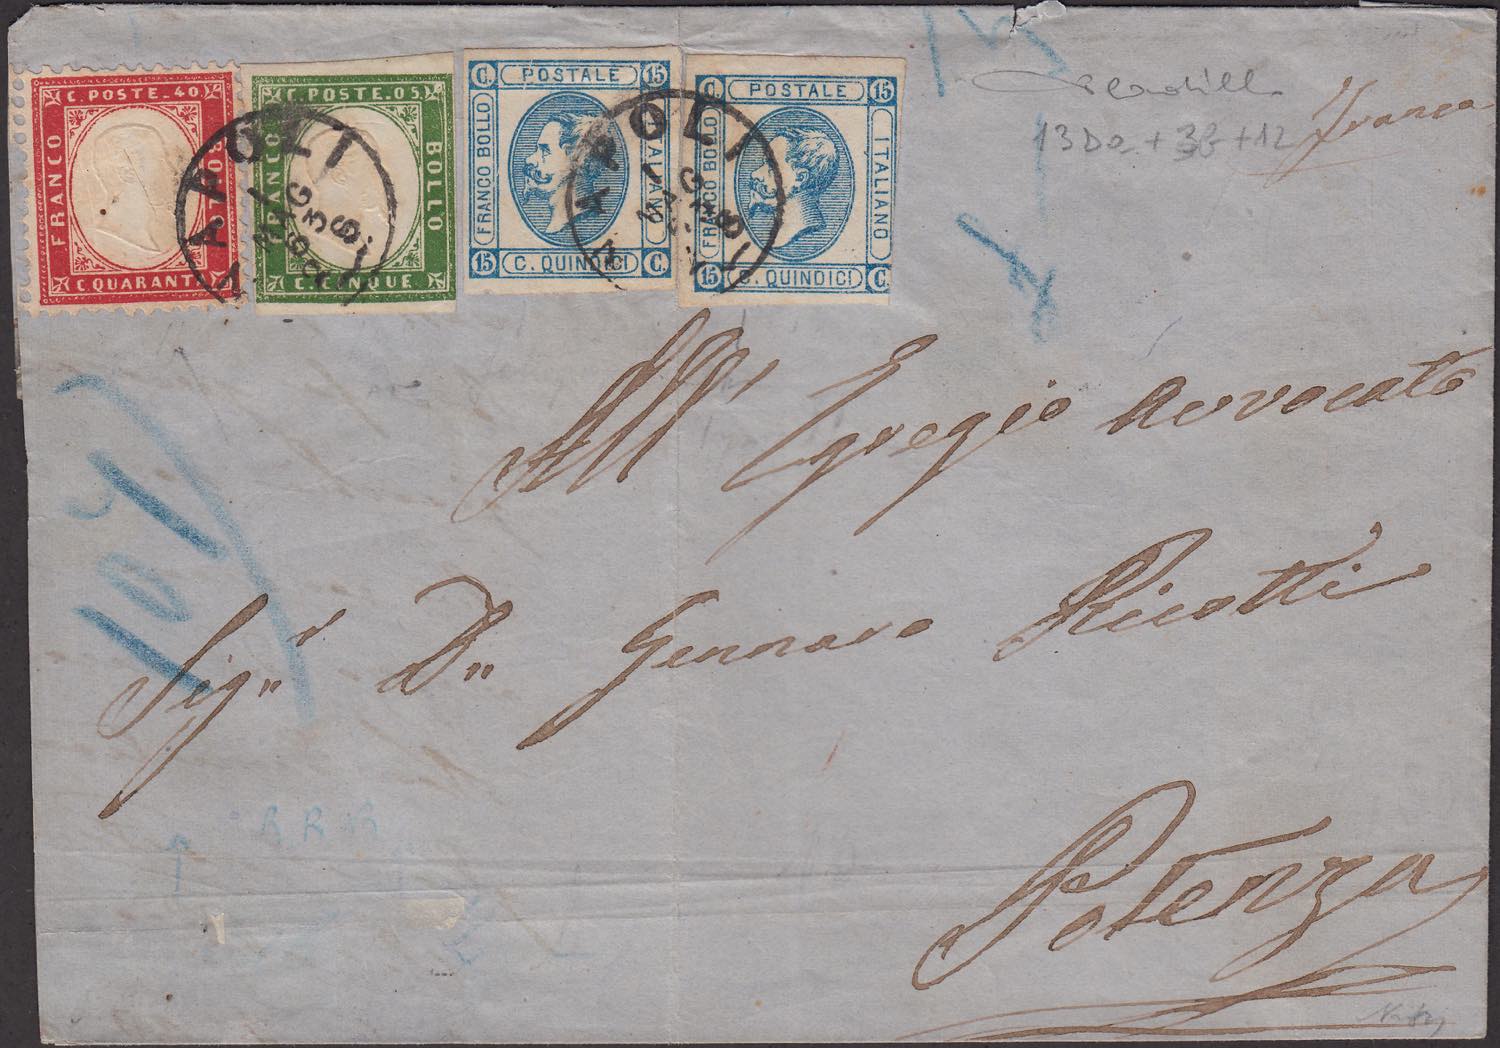 C. POSTE. 40.
FRANCO
BOLLO
C. QUARANTA
C. POSTE. 05.
FRANCO
BOLLO
C. CINQUE
C. POSTALE 15
FRANCO BOLLO
ITALIANO
15 C. QUINDICI C.
C. POSTALE 15
FRANCO BOLLO
ITALIANO
15 C. QUINDICI C.
NAPOLI
1 MAG 63
NAPOLI
1 MAG
13Da + 3B + 12
Franca
All' Egregio Avvocato
Sig.r D.n Gennaro Ricotti
Potenza
R R R